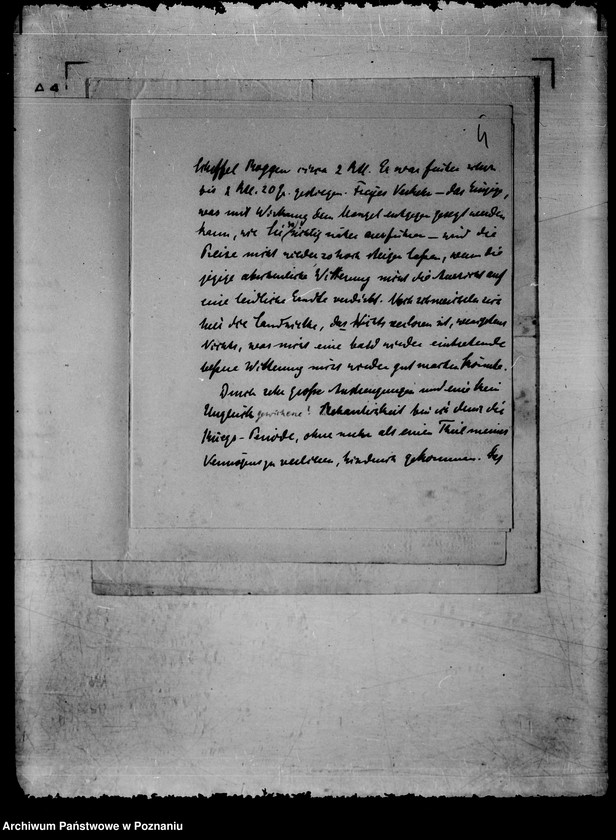 4
Scheffel Roggen circa 2 Rtl. Er war früher schon
bis 2 Rtl. 20 gestiegen. Freyer Verkehr – das Einzige,
was mit Wirkung dem Mangel entgegen gesetzt werden
kann, wie Sie richtig näher ausführen – wird die
Preise nicht wieder so hoch steigen laßen, wenn die
jezige abscheuliche Witterung nicht die Aussicht auf
eine leidliche Erndte verdirbt. Noch schmeicheln sich
hier die Landwirthe, daß Nichts verloren ist, wenigstens
Nichts, was nicht eine bald wieder eintretende
beßere Witterung nicht wieder gut machen könnte.
Durch sehr große Anstrengungen und eine kein
Unglück gewichene! Beharrlichkeit bin ich durch die
Kriegs-Periode, ohne mehr als einen Theil meines
Vermögens zu verlieren, hindurch gekommen. Des
Archiwum Państwowe w Poznaniu